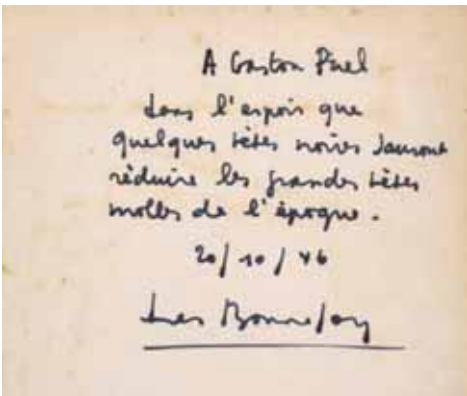 A Gaston Puel
dans l'espoir que
quelques têtes noires sauront
réduire les grandes têtes
molles de l'époque.
20/10/46
Yves Bonnefoy